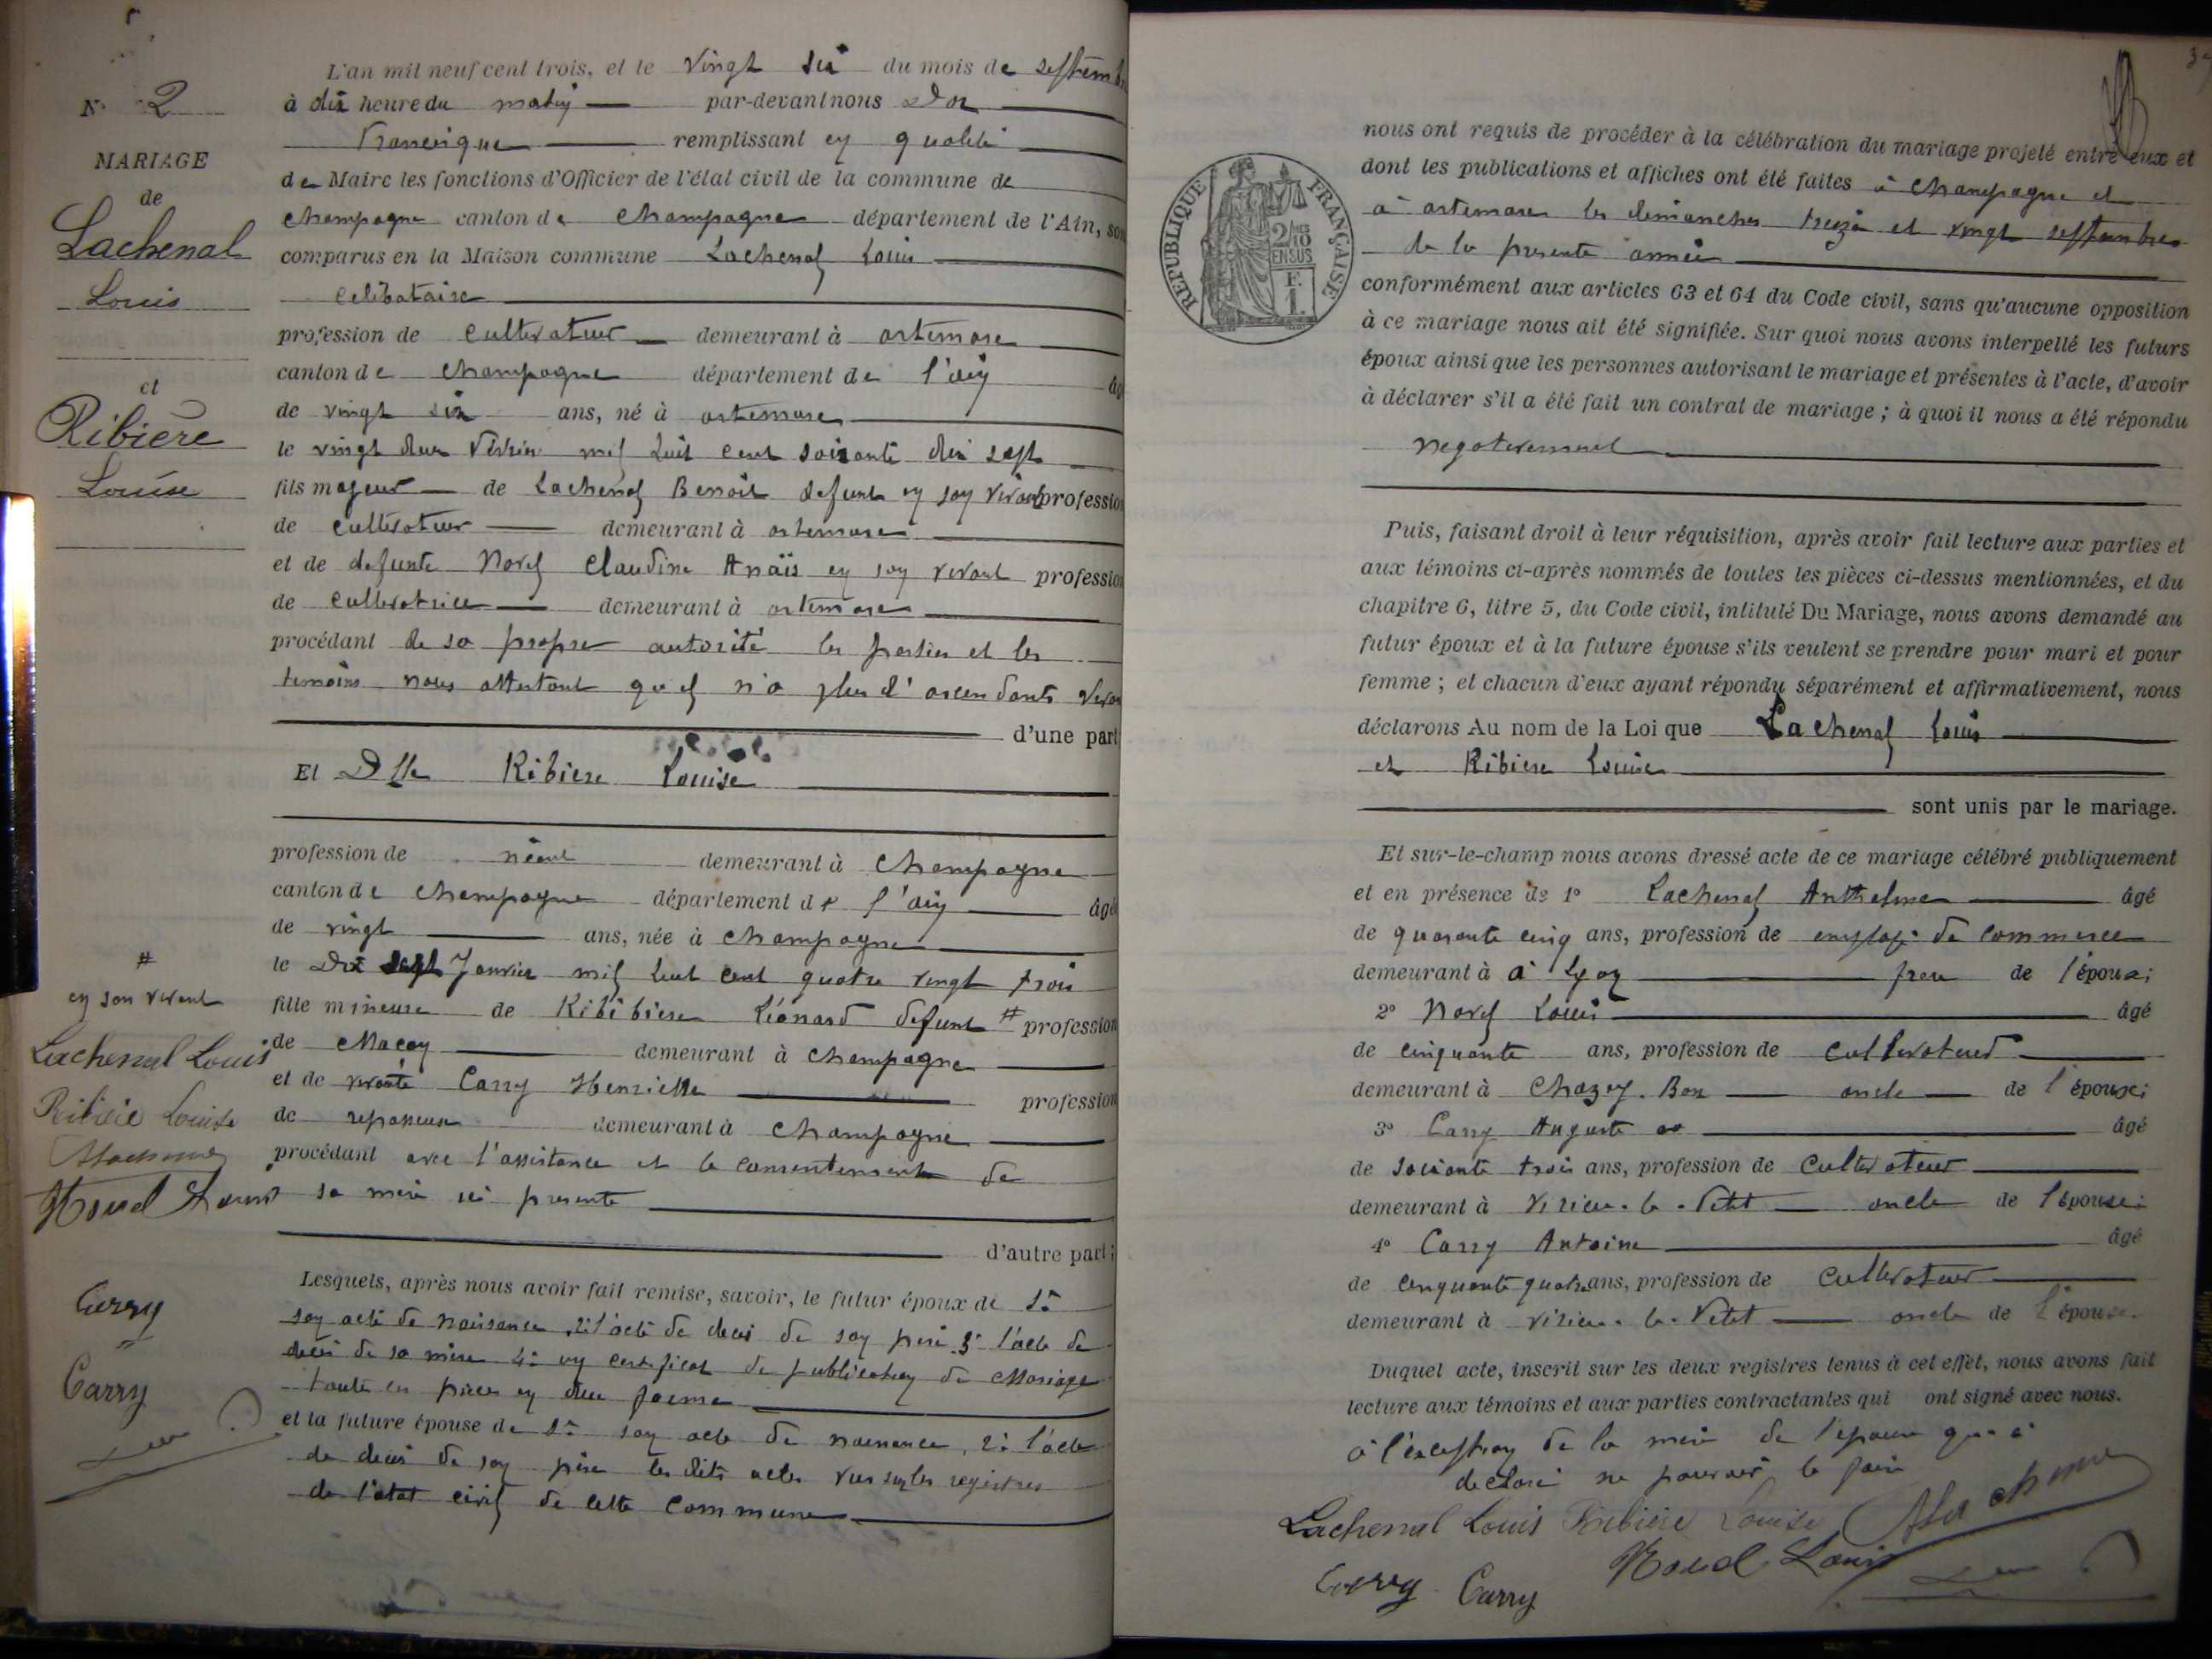 L'an mil neuf cent trois, et le vingt six du mois de septemb
N° 2
à dix heure du matin par-devant nous
Francisque remplissant en qualité
MARIAGE
de Maire les fonctions d'Officier de l'état civil de la commune de
de
Lachenal
Louis
et
Ribière
Louise
champagne canton de champagne département de l'Ain, son
comparus en la Maison commune Lachenal Louis
celibataire
profession de cultivateur demeurant à artemare
canton de champagne département de l'ain âg
de vingt six ans, né à artemare
le vingt deux Fevrier mil huit cent soixante dix sept
fils majeur de Lachenal Benoit defunt en son vivant profession
de cultivateur demeurant à artemare
et de defunte Norel Claudine Anaïs en son vivant profession
de cultivatrice demeurant à artemare
procédant de sa propre autorité les parties et les
temoins nous attestant qu'il n'a plus d'ascendants viva
d'une part
Et Dlle Ribiere Louise
profession de néant demeurant à Champagne
canton de champagne département de l'ain âgé
de vingt ans, née à champagne
le Dix sept Janvier mil huit cent quatre vingt trois
fille mineure de Ribibiere Léonard defunt # profession
#
en son vivant
de Maçon demeurant à champagne
et de vivante Carry Henriette profession
de repasseuse demeurant à champagne
procédant avec l'assistance et le consentement de
sa mère ici presente
d'autre part;
Lachenal Louis
Ribière Louise
Norel Louis
Carry
Carry
Lesquels, après nous avoir fait remise, savoir, le futur époux de 1°
son acte de naissance, 2° l'acte de deces de son père 3° l'acte de
deces de sa mère 4° un certificat de publication de Mariage
toute ces pièces en due forme
et la future épouse de 1° son acte de naissance, 2° l'acte
de deces de son père les dits actes vus sur les registres
de l'etat civil de cette commune
nous ont requis de procéder à la célébration du mariage projeté entre eux et
dont les publications et affiches ont été faites à champagne et
à artemare les dimanches treize et vingt septembre
de la presente année
conformément aux articles 63 et 64 du Code civil, sans qu'aucune opposition
à ce mariage nous ait été signifiée. Sur quoi nous avons interpellé les futurs
époux ainsi que les personnes autorisant le mariage et présentes à l'acte, d'avoir
à déclarer s'il a été fait un contrat de mariage ; à quoi il nous a été répondu
negativement
RÉPUBLIQUE FRANÇAISE
2/10
EN SUS
F.
1.
Puis, faisant droit à leur réquisition, après avoir fait lecture aux parties et
aux témoins ci-après nommés de toutes les pièces ci-dessus mentionnées, et du
chapitre 6, titre 5, du Code civil, intitulé Du Mariage, nous avons demandé au
futur époux et à la future épouse s'ils veulent se prendre pour mari et pour
femme ; et chacun d'eux ayant répondu séparément et affirmativement, nous
déclarons Au nom de la Loi que Lachenal Louis
et Ribiere Louise
sont unis par le mariage.
Et sur-le-champ nous avons dressé acte de ce mariage célébré publiquement
et en présence de 1° Lachenal Anthelme âgé
de quarante cinq ans, profession de employé de commerce
demeurant à à Lyon frere de l'époux;
2° Norel Louis âgé
de cinquante ans, profession de cultivateur
demeurant à Chazey. Bon oncle de l'époux;
3° Carry Auguste âgé
de soixante trois ans, profession de cultivateur
demeurant à Virieu-le-Petit oncle de l'épouse;
4° Carry Antoine âgé
de cinquante quatre ans, profession de cultivateur
demeurant à Virieu-le-Petit oncle de l'épouse.
Duquel acte, inscrit sur les deux registres tenus à cet effet, nous avons fait
lecture aux témoins et aux parties contractantes qui ont signé avec nous.
à l'exception de la mère de l'epouse qui a
declaré ne pouvoir le faire
Lachenal Louis Ribière Louise
Norel Louis
Carry Carry